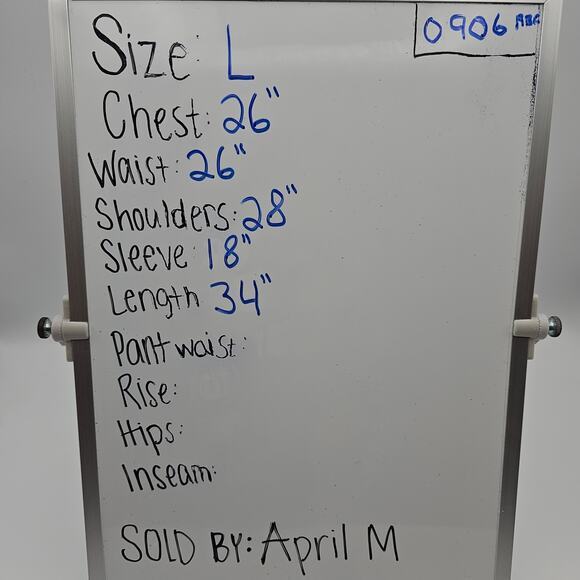 0906
Size: L
Chest: 26"
Waist: 26"
Shoulders: 28"
Sleeve 18"
Length 34"
Pant waist:
Rise:
Hips:
Inseam:
SOLD BY: April M